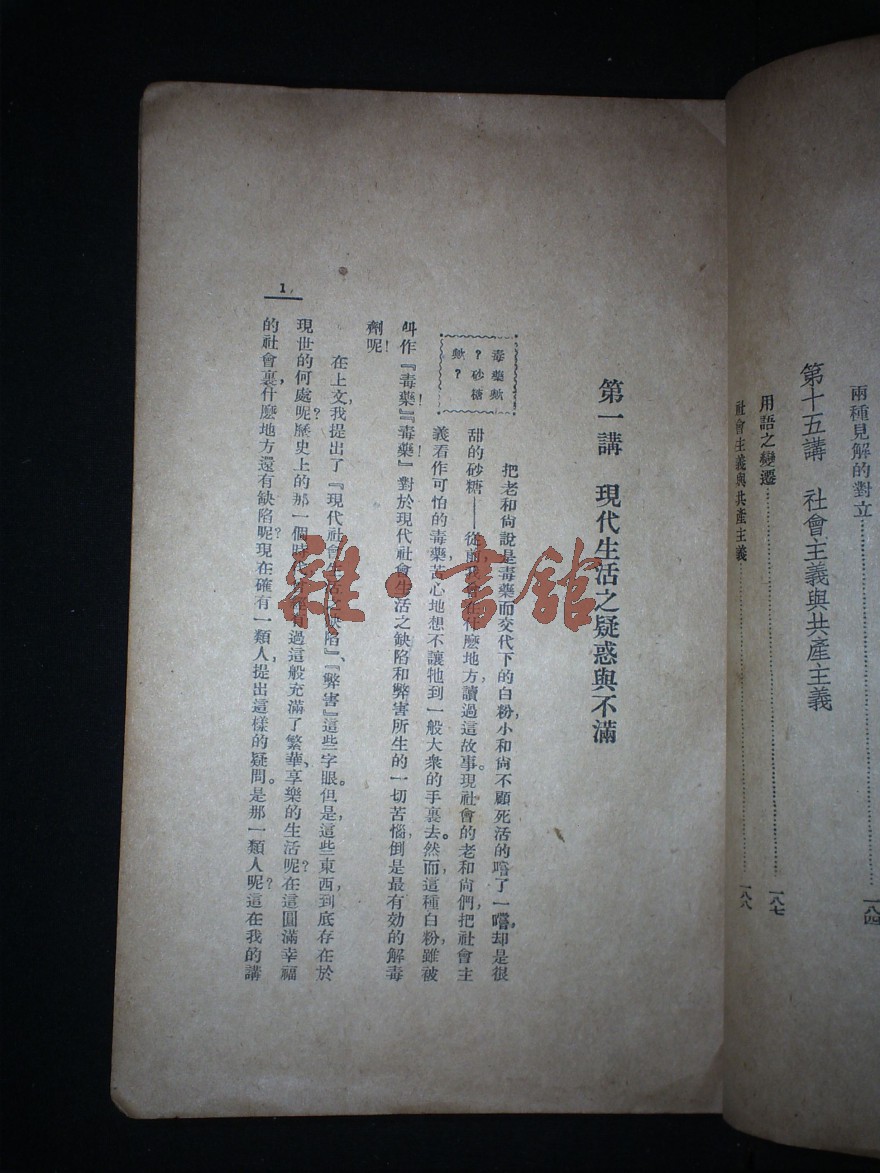 兩種見解的對立……一八四
第十五講　社會主義與共產主義
用語之變遷……一八七
社會主義與共產主義……一八八
第一講　現代生活之疑惑與不滿
毒藥歟
？砂糖
歟？
把老和尙說是毒藥而交代下的白粉,小和尙不顧死活的嚐了一嚐,却是很
甜的砂糖——從前,我曾在什麽地方,讀過這故事。現社會的老和尙們,把社會主
義看作可怕的毒藥,苦心地想不讓牠到一般大衆的手裏去。然而,這種白粉,雖被
叫作『毒藥!』『毒藥!』對於現代社會生活之缺陷和弊害所生的一切苦惱,倒是最有効的解毒
劑呢!
在上文,我提出了『現代社會生活之缺陷』、『弊害』這些字眼。但是,這些東西,到底存在於
現世的何處呢?歷史上的那一個時代,曾經有過這般充滿了繁華、享樂的生活呢?在這圓滿幸福
的社會裏,什麽地方還有缺陷呢?現在確有一類人,提出這樣的疑問。是那一類人呢?這在我的講
1
雜·書館